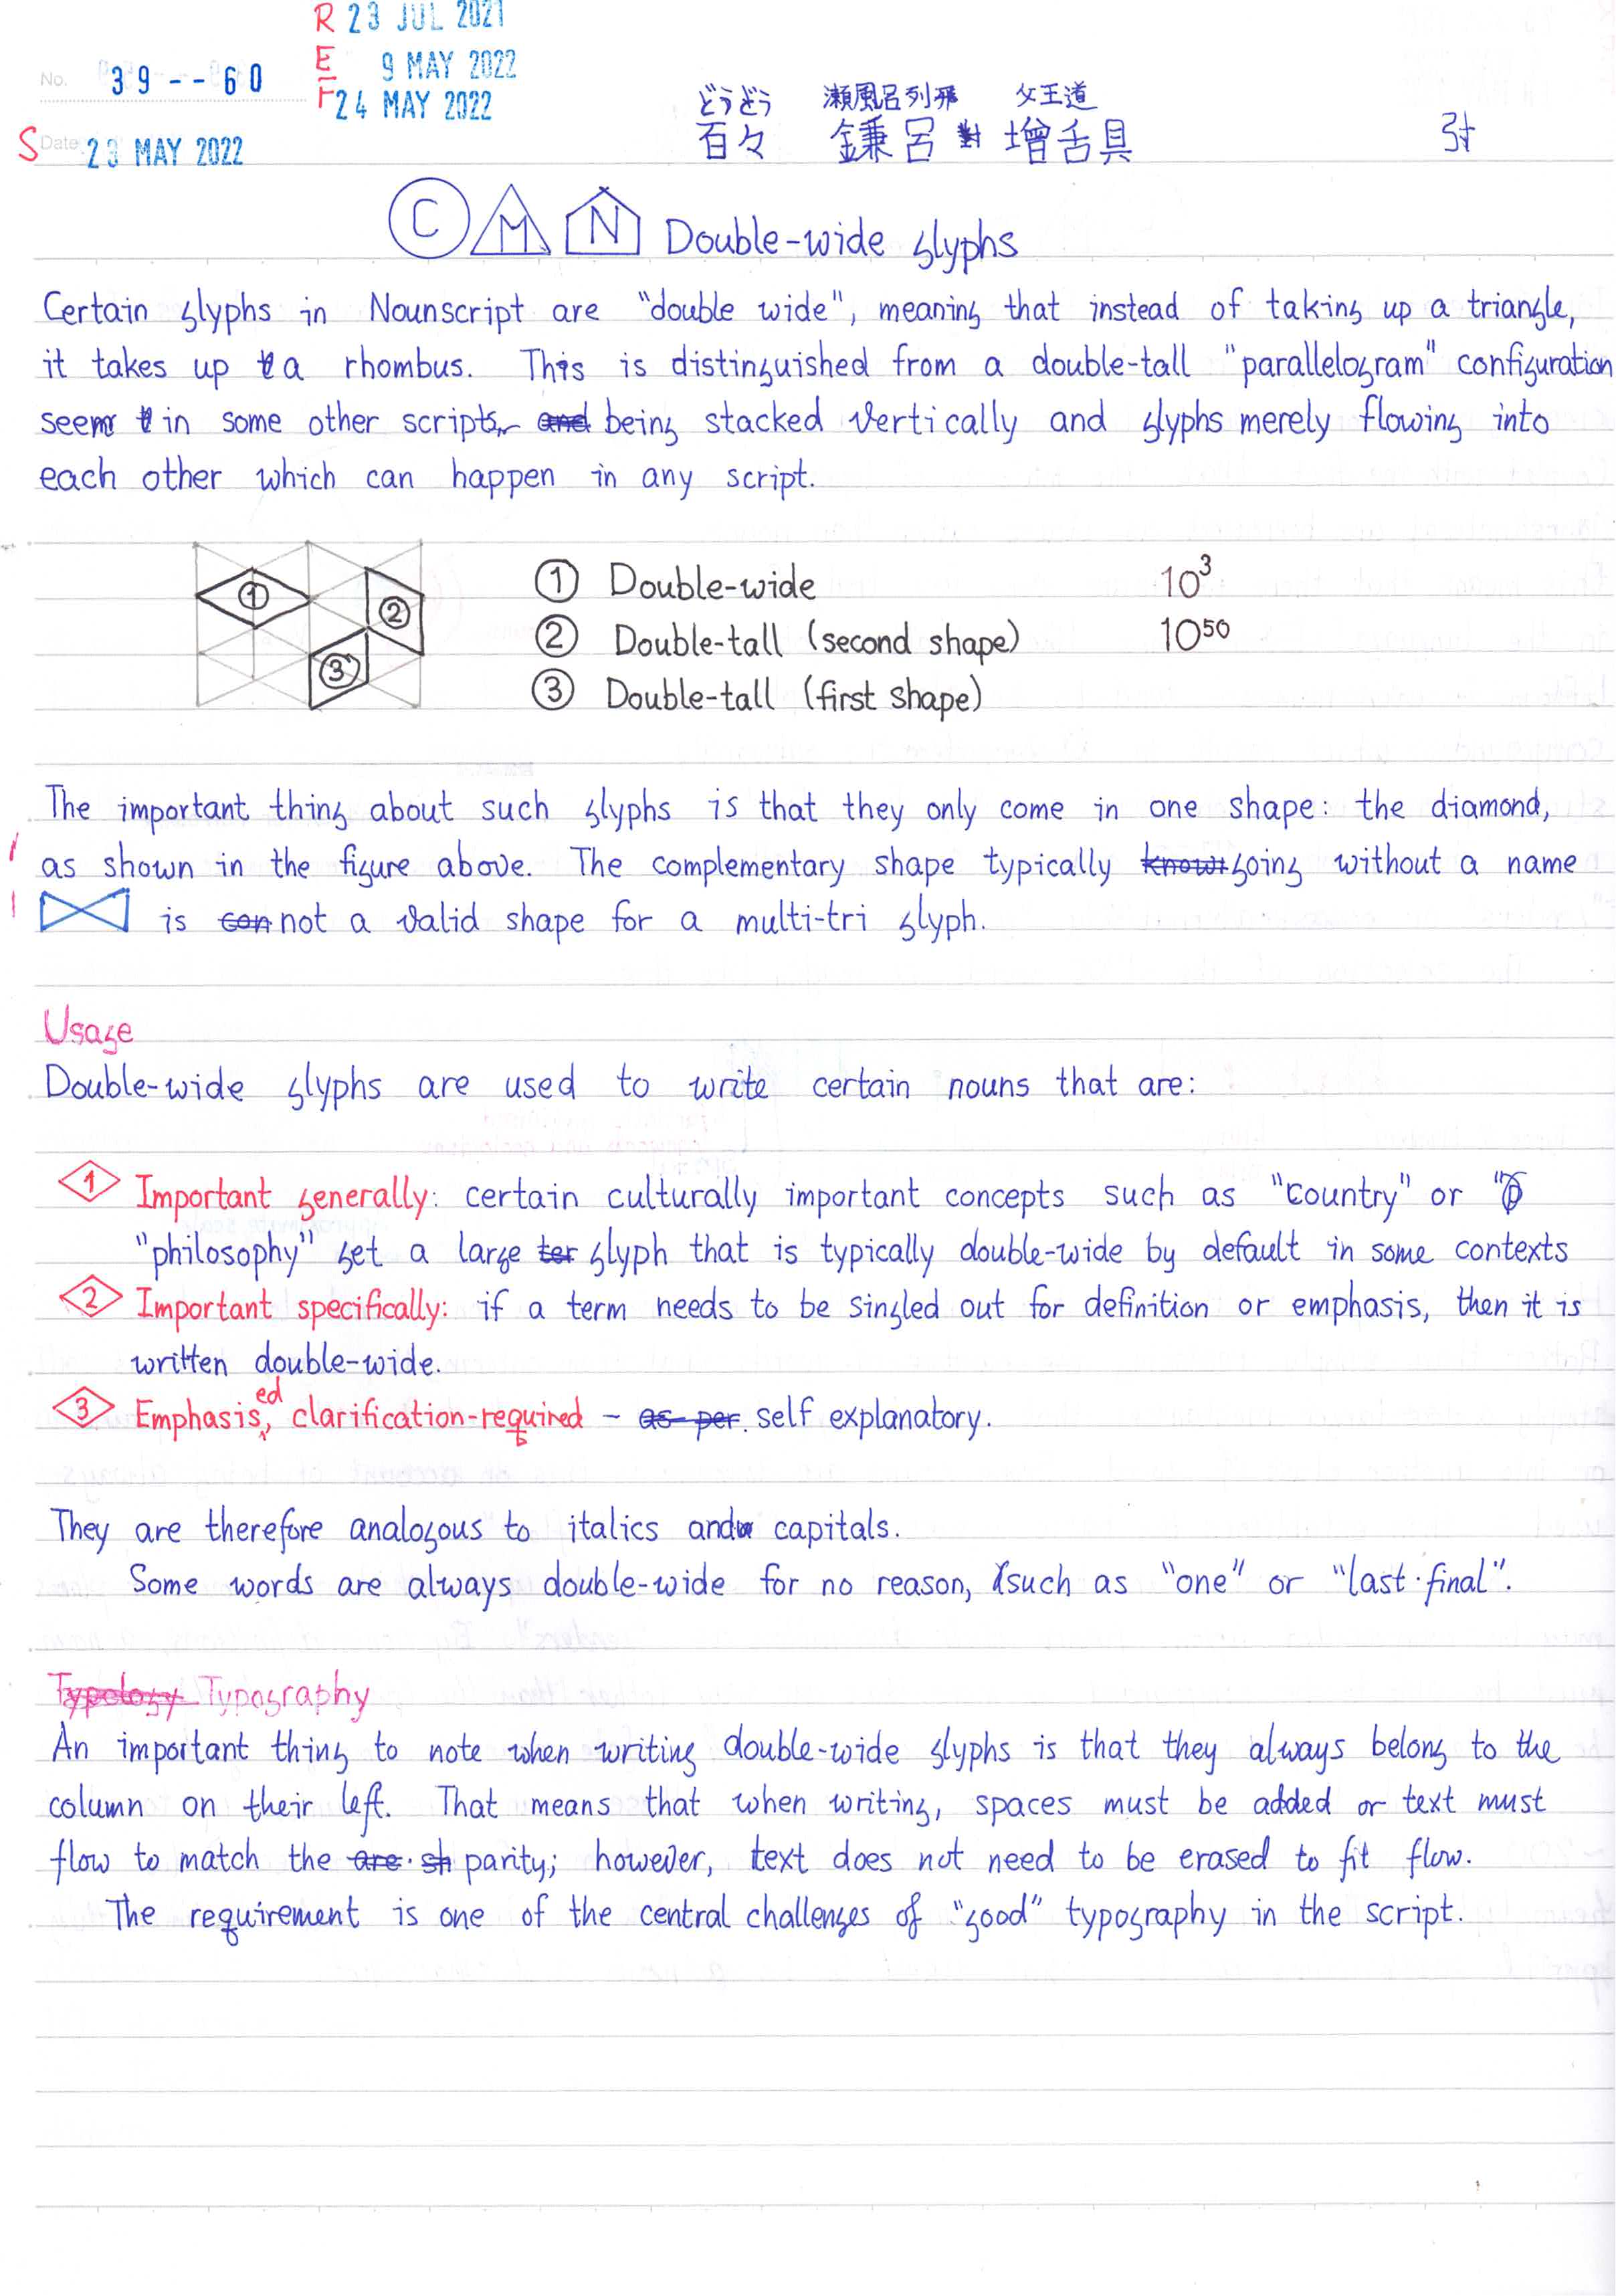 R 23 JUL 2021
No. 39--60 E 9 MAY 2022
r 24 MAY 2022
S Date 23 MAY 2022
どうどう 瀬風呂列飛 父王道
百々 鎌呂 對 增舌具
C M N Double-wide glyphs
Certain glyphs in Nounscript are "double wide", meaning that instead of taking up a triangle,
it takes up a rhombus. This is distinguished from a double-tall "parallelogram" configuration
seen in some other scripts, and being stacked vertically and glyphs merely flowing into
each other which can happen in any script.
1 2 3
① Double-wide 10³
② Double-tall (second shape) 10⁵⁰
③ Double-tall (first shape)
The important thing about such glyphs is that they only come in one shape: the diamond,
as shown in the figure above. The complementary shape typically known going without a name
is can not a valid shape for a multi-tri glyph.
Usage
Double-wide glyphs are used to write certain nouns that are:
1 Important generally: certain culturally important concepts such as "country" or
"philosophy" get a large ter glyph that is typically double-wide by default in some contexts
2 Important specifically: if a term needs to be singled out for definition or emphasis, then it is
written double-wide.
3 Emphasised, clarification-required - as per self explanatory.
They are therefore analogous to italics and capitals.
Some words are always double-wide for no reason, such as "one" or "last·final".
Typology Typography
An important thing to note when writing double-wide glyphs is that they always belong to the
column on their left. That means that when writing, spaces must be added or text must
flow to match the are sh parity; however, text does not need to be erased to fit flow.
The requirement is one of the central challenges of "good" typography in the script.